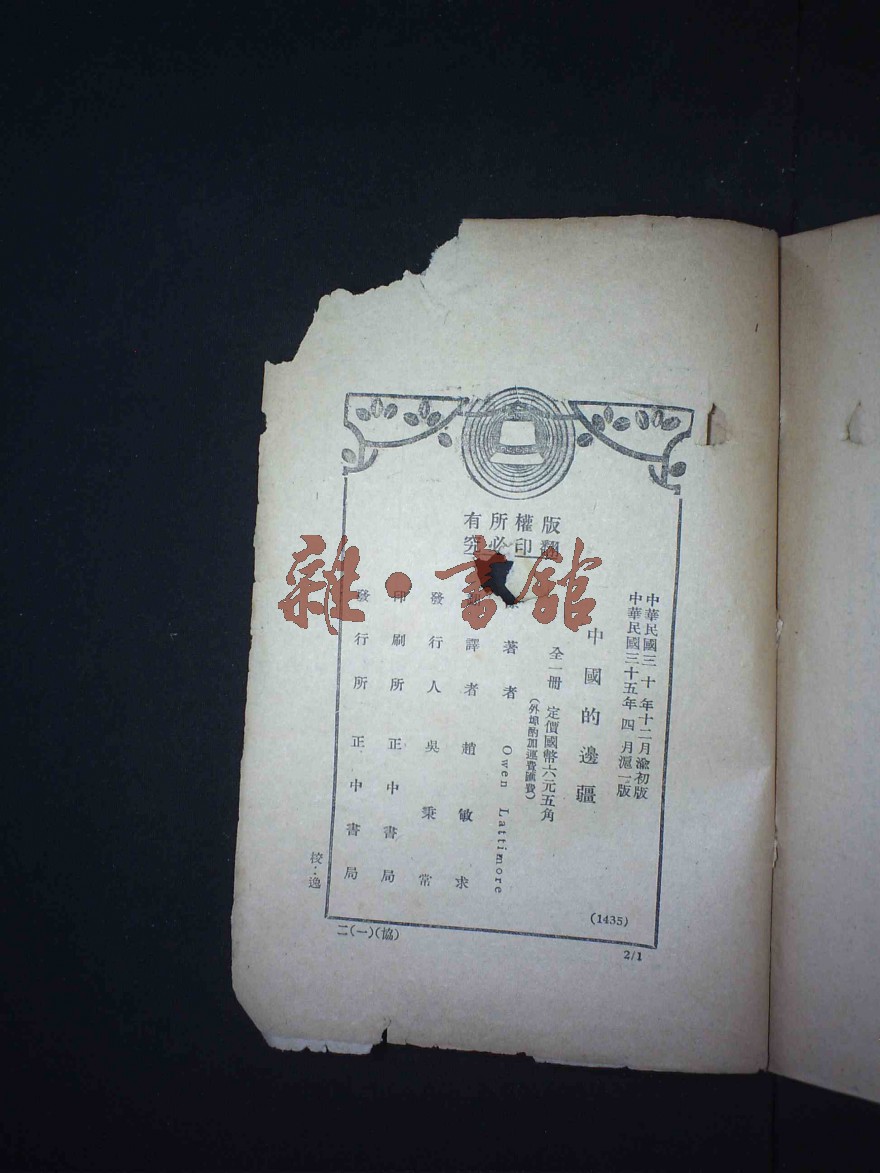 中華民國三十年十二月渝初版
中華民國三十五年四月滬一版
中國的邊疆
全一冊 定價國幣六元五角
(外埠酌加運費匯費)
著者 Owen Lattimore
譯者 趙敏求
發行人 吳秉常
印刷所 正中書局
發行所 正中書局
版權所有
翻印必究
(1435)
校:逸
二(一)(協)
2/1
雜·書館